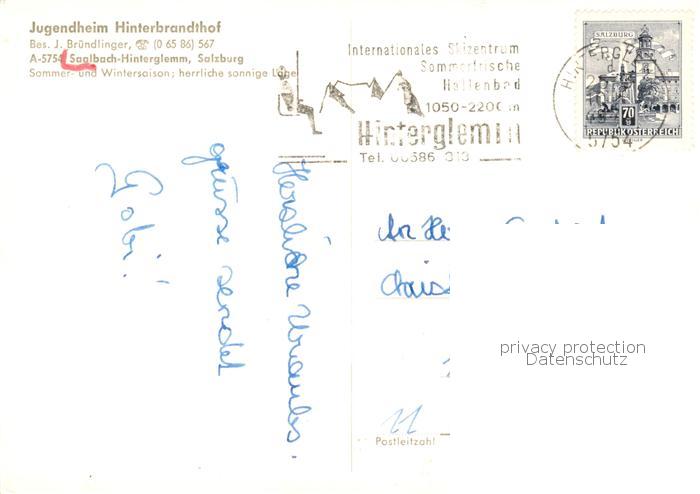 Jugendheim Hinterbrandthof
Bes. J. Bründlinger, ☏ (0 65 86) 567
A-5754 Saalbach-Hinterglemm, Salzburg
Sommer- und Wintersaison; herrliche sonnige Lage
Internationales Skizentrum
Sommerfrische
Hallenbad
1050-2200 m
Hinterglemm
Tel. 06586 313
SALZBURG
70 g
REPUBLIK ÖSTERREICH
HINTERGLE
5754
Herzliche Urlaubs-
grüsse sendet
Gabi!
An
privacy protection
Datenschutz
Postleitzahl